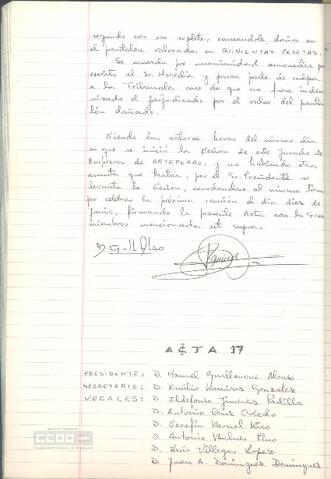 segundo con un soplete, causandole daños en
el pantalón valorados en QUINIENTAS PESETAS.
Se acuerda por unanimidad amonestar por
escrito al Sr. Heredia y pasar parte de
a la Tribunales caso de que no fuese indem
nizado el perjudicado por el valor del panta
lón dañado.
Siendo las catorce horas del mismo día,
en que se inició la sesión de este Jurado de
Empresa de ARTEFERRO, y no habiendo otros
asuntos que tratar, por el Sr. Presidente se
levanta la sesión, acordandose al mismo tiem
po celebrar la próxima reunión el día diez de
Junio, firmando la presente Acta con los Sres.
miembros mencionados ut supra.
Ramirez
ACTA 17
PRESIDENTE: D. Manuel Alonso
SECRETARIO: D. Emilio Ramirez Gonzalez
VOCALES: D. Ildefonso Jimenez Padilla
D. Antonio Cruz Oviedo
D. Serafín Bernal Rico
D. Antonio Pino
D. Luis Villegas Lopez
D. Juan A. Dominguez Dominguez
CCOO